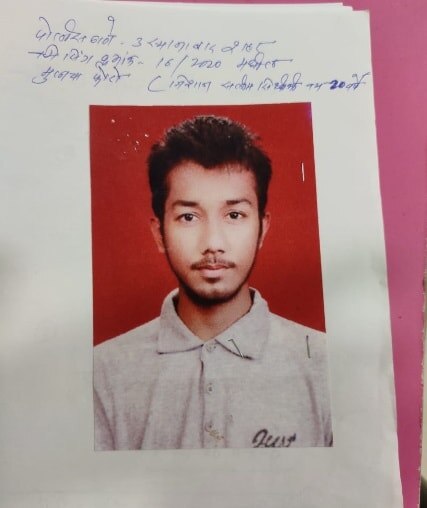 पोलीस ठाणे - उस्मानाबाद शहर
मिसिंग क्रमांक - 16/2020 मधील
फोटो ( वय 20 वर्षे
Just